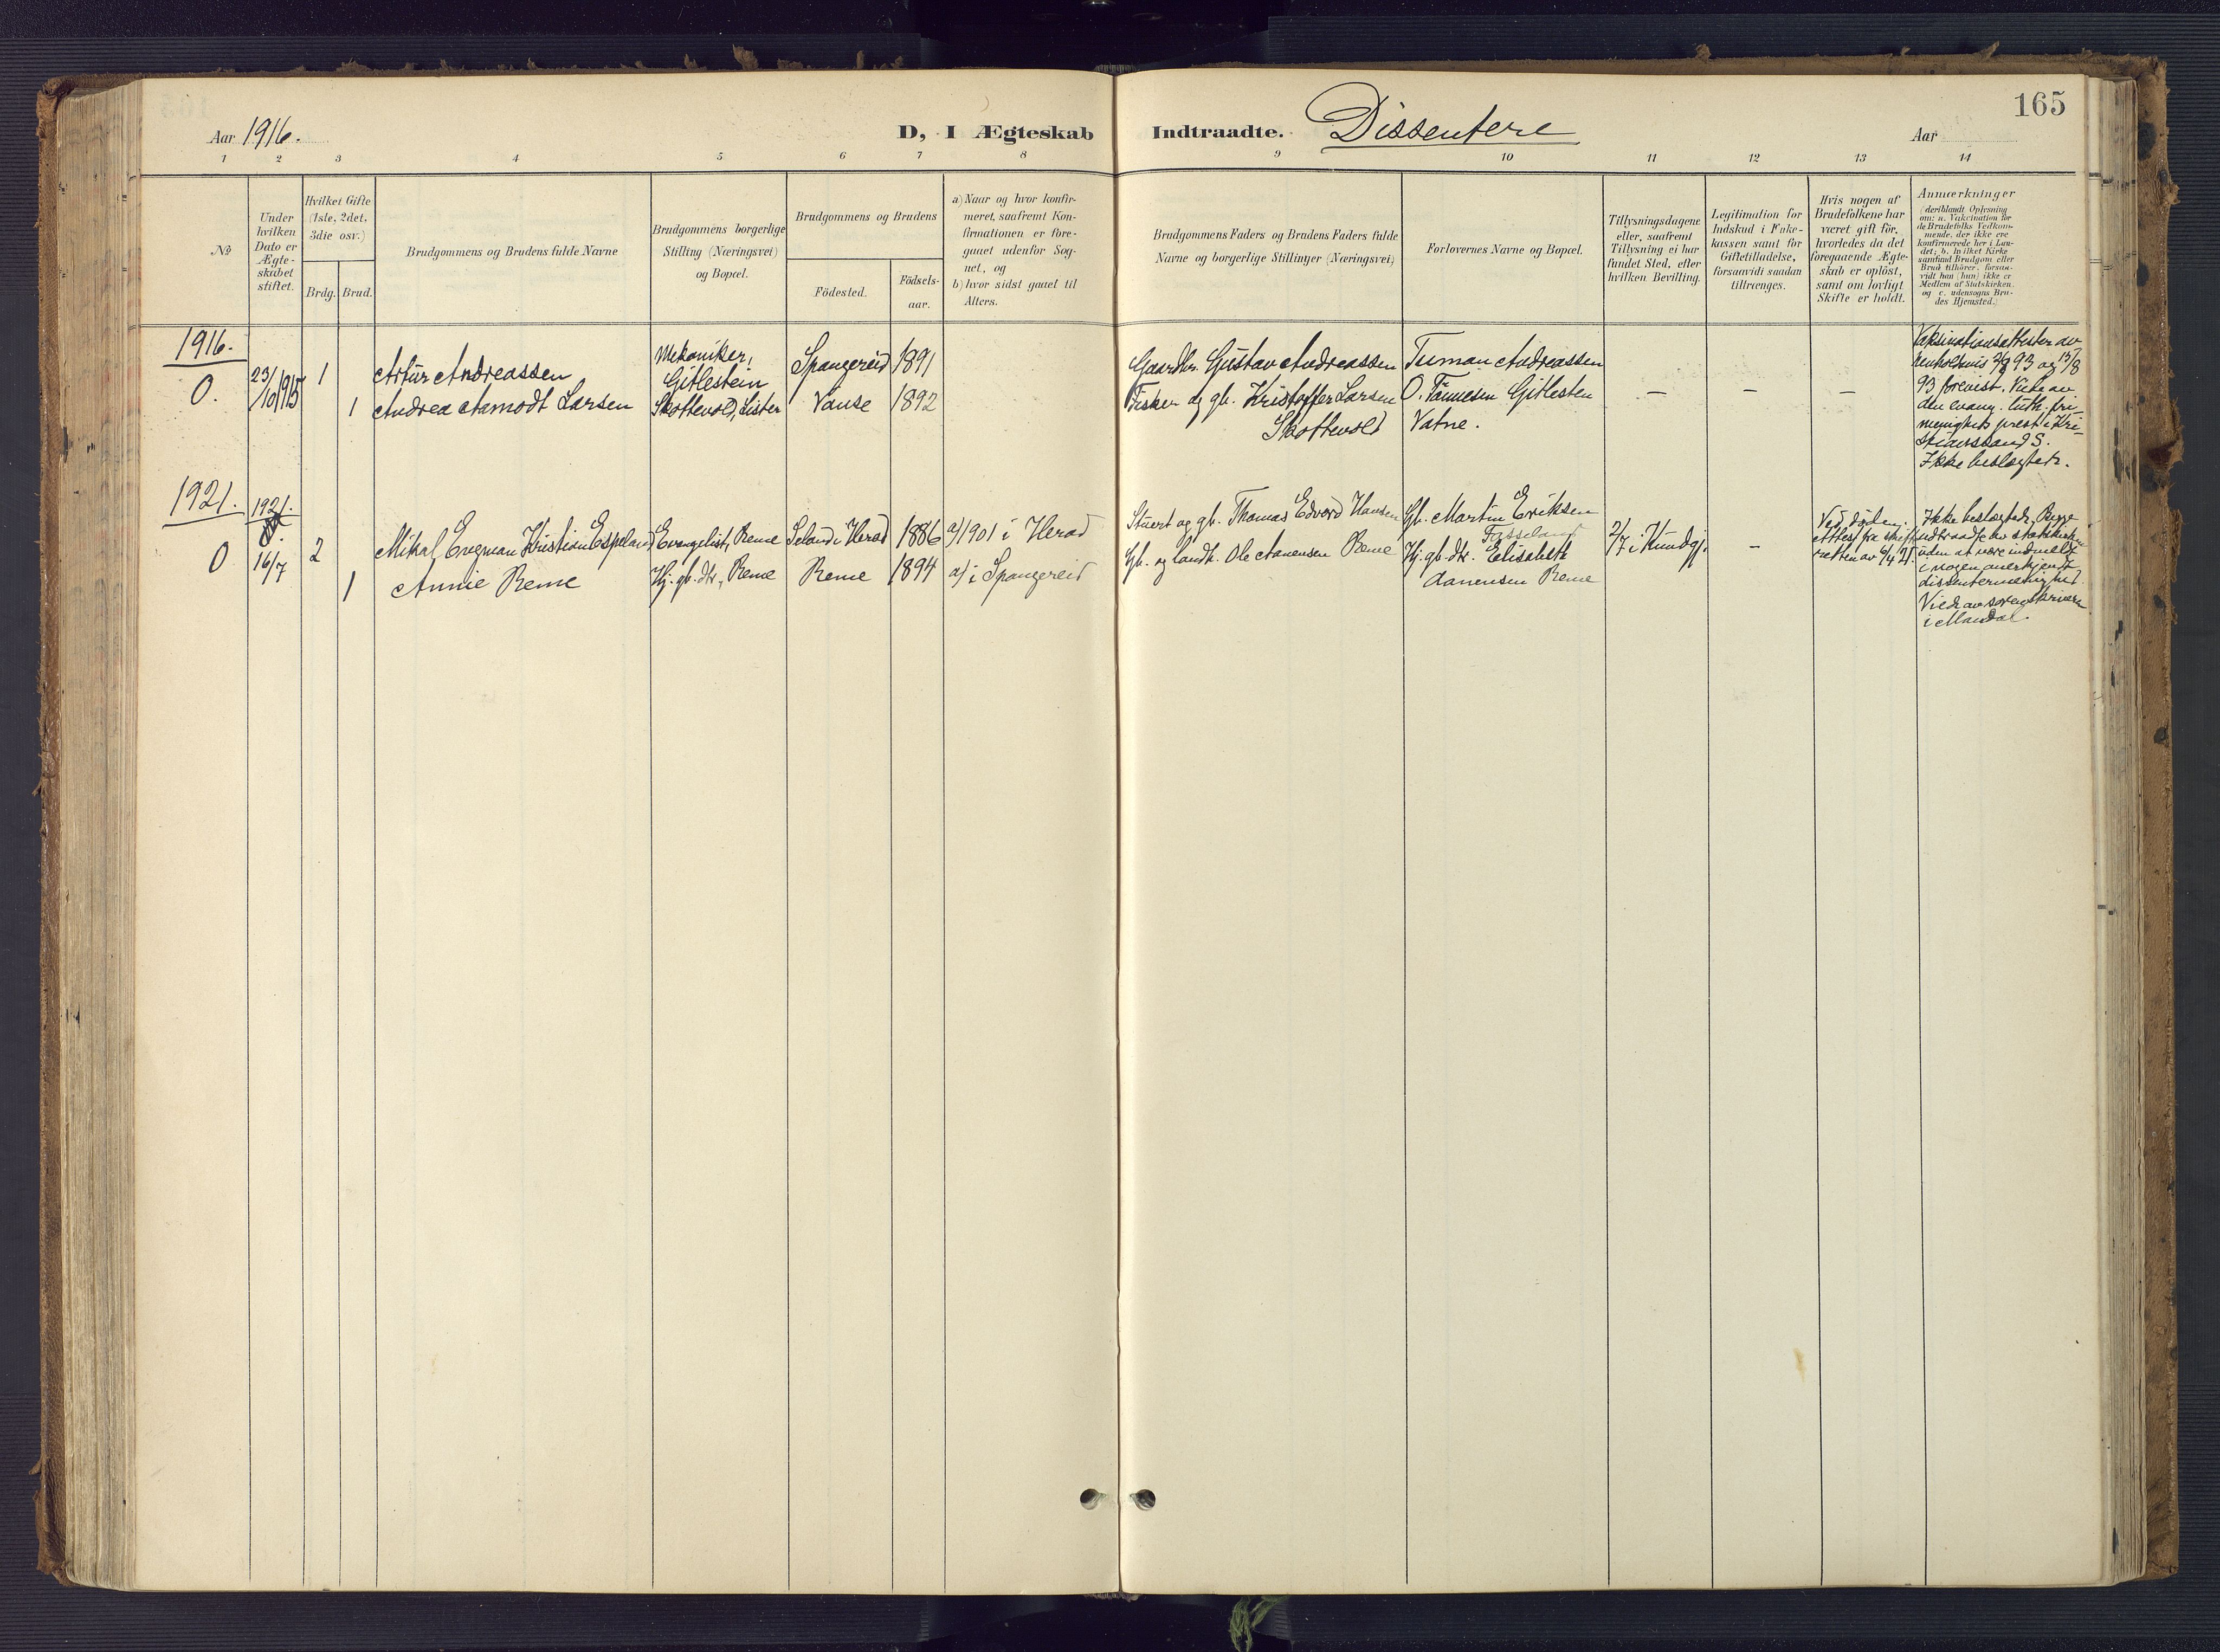 165
Aar 1916.
D, I Ægteskab Indtraadte. Dissentere
Aar
1 2 3 4 5 6 7 8 9 10 11 12 13 14
No
Under
hvilken
Dato er
Ægte-
skabet
stiftet.
Hvilket Gifte
(1ste, 2det,
3die osv.)
Brdg. Brud.
Brudgommens og Brudens fulde Navne
Brudgommens borgerlige
Stilling (Næringsvei)
og Bopæl.
Brudgommens og Brudens
Födested.
Födsels-
aar.
a) Naar og hvor konfir-
meret, saafremt Kon-
firmationen er fore-
gaaet udenfor Sog-
net, og
b) hvor sidst gaaet til
Alters.
Brudgommens Faders og Brudens Faders fulde
Navne og borgerlige Stillinger (Næringsvei)
Forlovernes Navne og Bopæl.
Tillysningsdagene
eller, saafremt
Tillysning ei har
fundet Sted, efter
hvilken Bevilling.
Legitimation for
Indskud i Enke-
kassen samt for
Giftetilladelse,
forsaavidt saadan
tiltrænges.
Hvis nogen af
Brudefolkene har
været gift för,
hvorledes da det
foregaaende Ægte-
skab er oplöst,
samt om lovligt
Skifte er holdt.
Anmærkninger
(deriblandt Oplysning
om: a. Vakcination for
de Brudefolks Vedkom-
mende, der ikke ere
konfirmerede her i Lan-
det; b. hvilket Kirke-
samfund Brudgom eller
Brud tilhörer, forsaa-
vidt han (hun) ikke er
Medlem af Statskirken,
og c. udensogns Bru-
des Hjemsted.)
1916.
O.
23/10 1915
1
1
Artur Andreassen
Andrea Aamodt Larsen
Mekaniker,
Gitlestein
Skottevold, Lister
Spangereid 1891
Vanse 1892
Gaardbr. Gustav Andreassen
Fisker og gb. Kristoffer Larsen
Skottevold
Tuman Andreassen
O. Tønnesen Gitlesten
Vatne.
–
–
–
Vaksinationsattester av
henholdsvis 93 og 15/8
93 forevist. Viede av
den evang. luth. fri-
menigheds prest i Kri-
stianssand S.
Ikke beslægtet.
1921.
1921.
O
16/7
2
1
Mikal Engman Kristian Espeland
Annie Reme
Evangelist, Reme
Hj. gb. dtr., Reme
Seland i Herad 1886
Reme 1894
a) 1901 i Herad
a) i Spangereid
Stuert og gb. Thomas Edvard Hansen
Gb. og landh. Ole Aanensen Reme
Gb. Martin Eriksen
Fasseland
Hj. gb. dtr. Elisabeth
Aanensen Reme
2/7 i Kundgj.
–
Ved döden.
Attest fra skifte-
retten av 6/4 21.
Ikke beslægtede, Begge
udtraadt av statskirken
uden at være indmeldt
i nogen anerkjendt
dissentermenighed.
Viede av sorenskriveren
i Mandal.